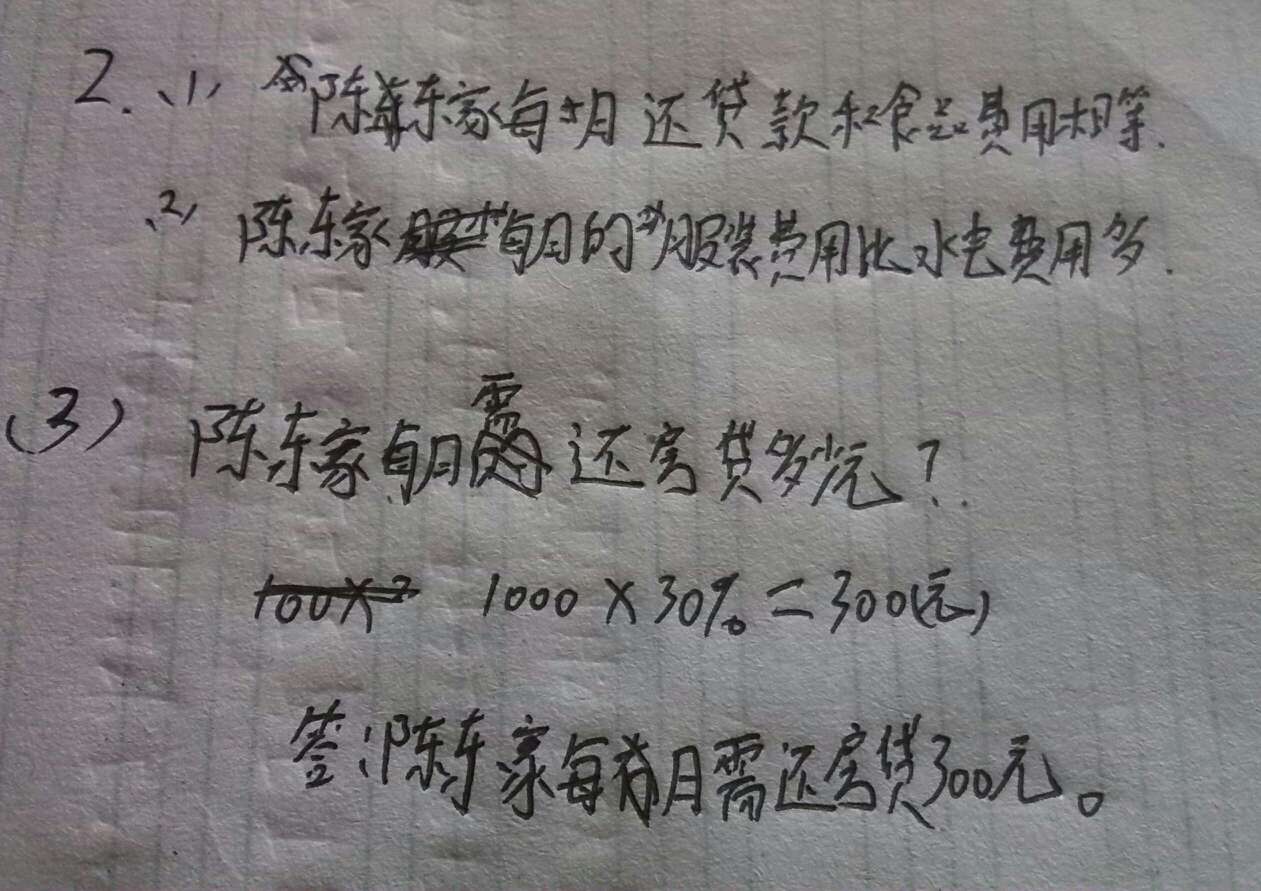 2.(1) 陈东家每月还贷款和食品费用相等.
(2) 陈东家每月的服装费用比水电费用多.
(3) 陈东家每月需还房贷多少元?
1000×30%=300(元)
答:陈东家每月需还房贷300元。